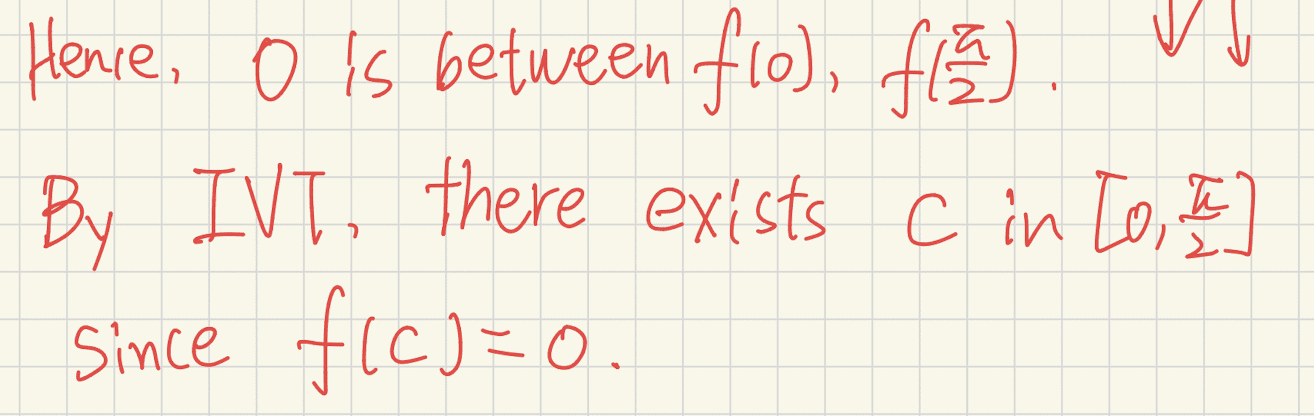 Hence, 0 is between f(0), f(π/2).
By IVT, there exists C in [0, π/2]
since f(c)=0.